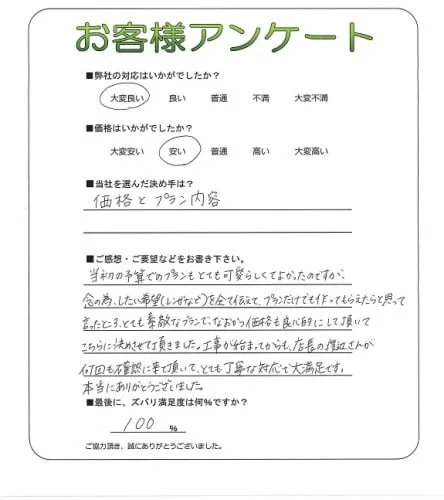 お客様アンケート
■弊社の対応はいかがでしたか？
大変良い 良い 普通 不満 大変不満
■価格はいかがでしたか？
大変安い 安い 普通 高い 大変高い
■当社を選んだ決め手は？
価格とプラン内容
■ご感想・ご要望などをお書き下さい。
当初の予算でのプランもとても可愛らしくてよかったのですが、
念の為、したい希望(レンガなど)を全て伝えて、プランだけでも作ってもらえたらと思って
言ったところ、とても素敵なプランで、なおかつ価格も良心的にして頂いて
こちらに決めさせて頂きました。工事が始まってからも、店長の渡辺さんが
何回も確認に来て頂いて、とても丁寧な対応で大満足です。
本当にありがとうございました。
■最後に、ズバリ満足度は何％ですか？
100 ％
ご協力頂き、誠にありがとうございました。